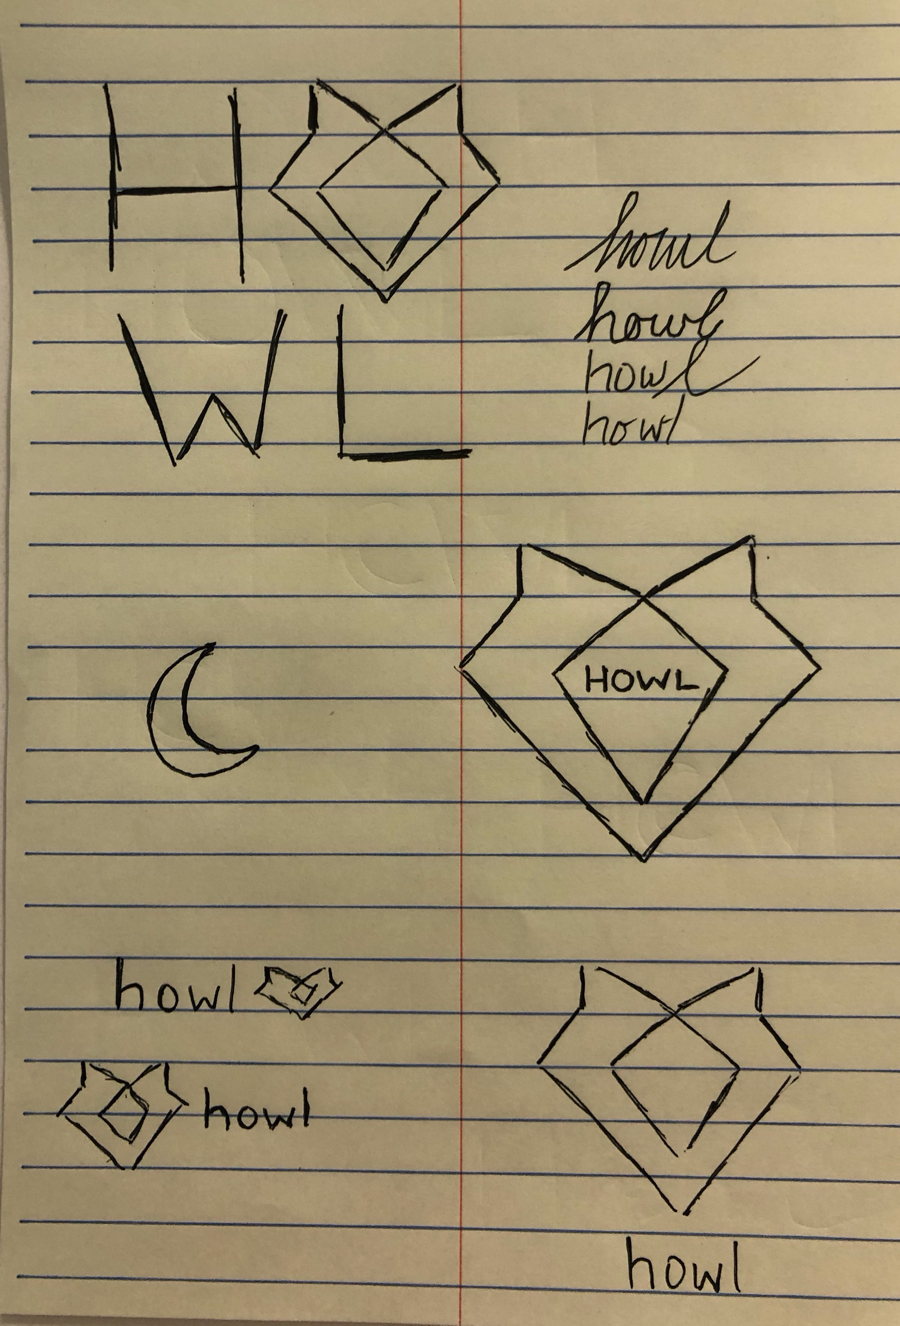 HO
WL
howl
howl
howl
howl
HOWL
howl
howl
howl